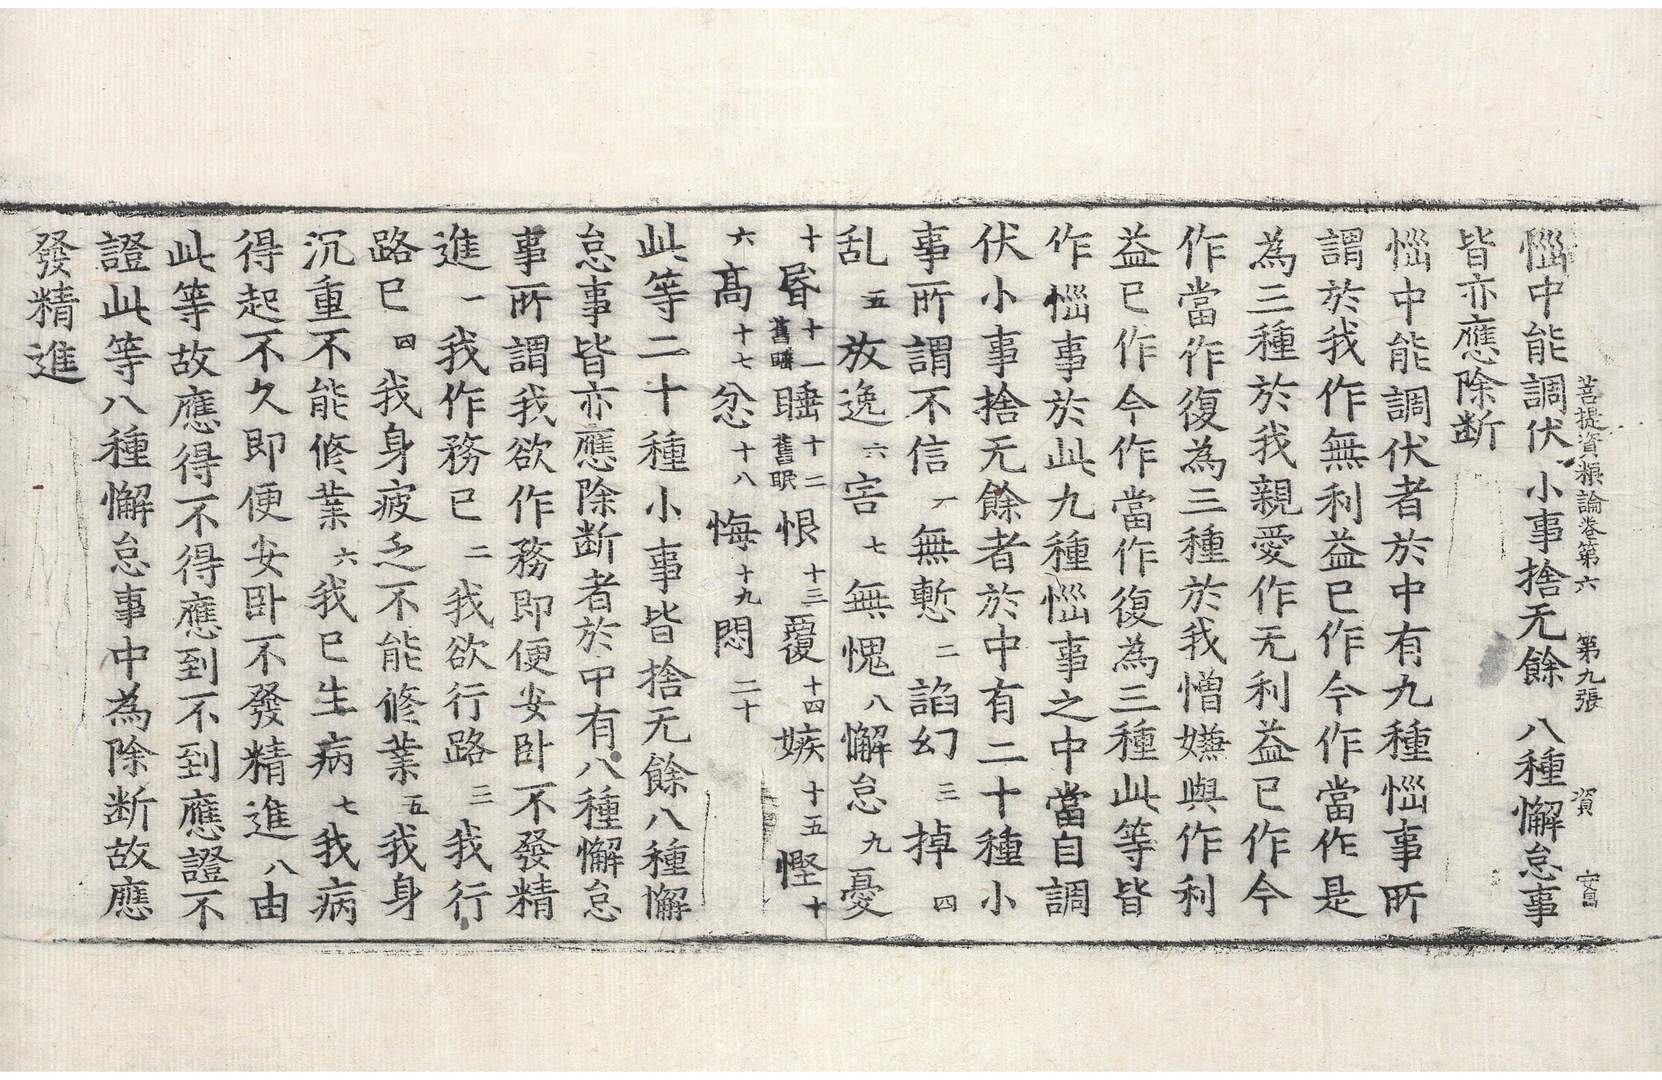 菩提資粮論卷第六　第九張　資
惱中能調伏　小事捨无餘　八種懈怠事
皆亦應除断
惱中能調伏者於中有九種惱事所
謂於我作無利益已作今作當作是
為三種於我親愛作无利益已作今
作當作復為三種於我憎嫌與作利
益已作今作當作復為三種此等皆
作惱事於此九種惱事之中當自調
伏小事捨无餘者於中有二十種小
事所謂不信一無慙二諂幻三掉四
乱五放逸六害七無愧八懈怠九憂
十昏十一舊睡睡十二舊眠恨十三覆十四嫉十五慳十
六高十七忿十八悔十九悶二十
此等二十種小事皆捨无餘八種懈
怠事皆亦應除断者於中有八種懈怠
事所謂我欲作務即便安卧不發精
進一我作務已二我欲行路三我行
路已四我身疲乏不能修業五我身
沉重不能修業六我已生病七我病
得起不久即便安卧不發精進八由
此等故應得不得應到不到應證不
證此等八種懈怠事中為除断故應
發精進